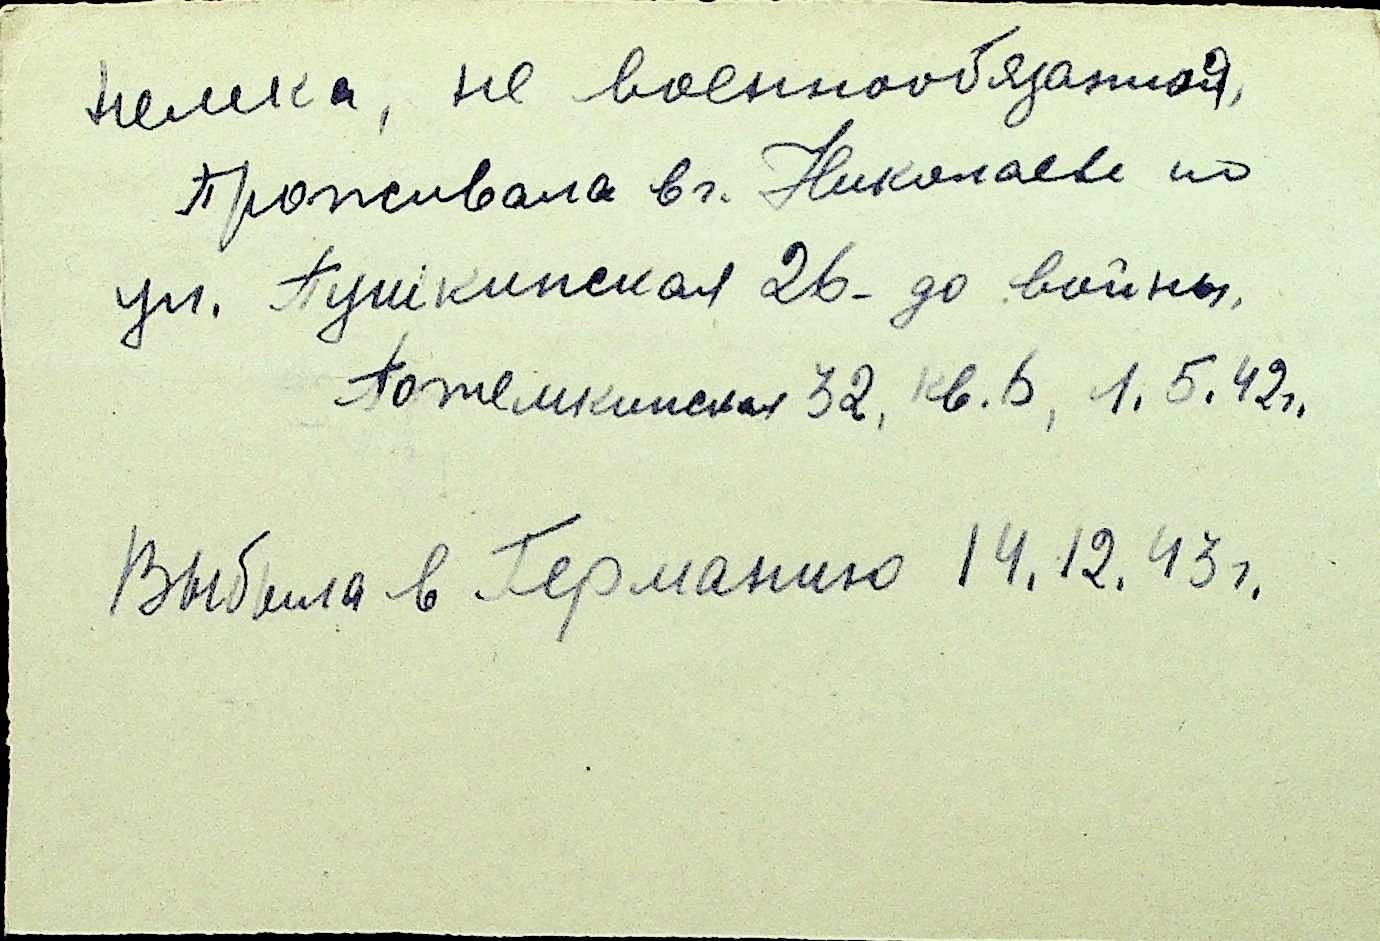 немка, не военнообязаной,
проживала в г. Николаеве по
ул. Пушкинская 26 - до войны.
Потемкинская 32, кв. 6, 1.5.42г.
Выбыла в Германию 14.12.43г.